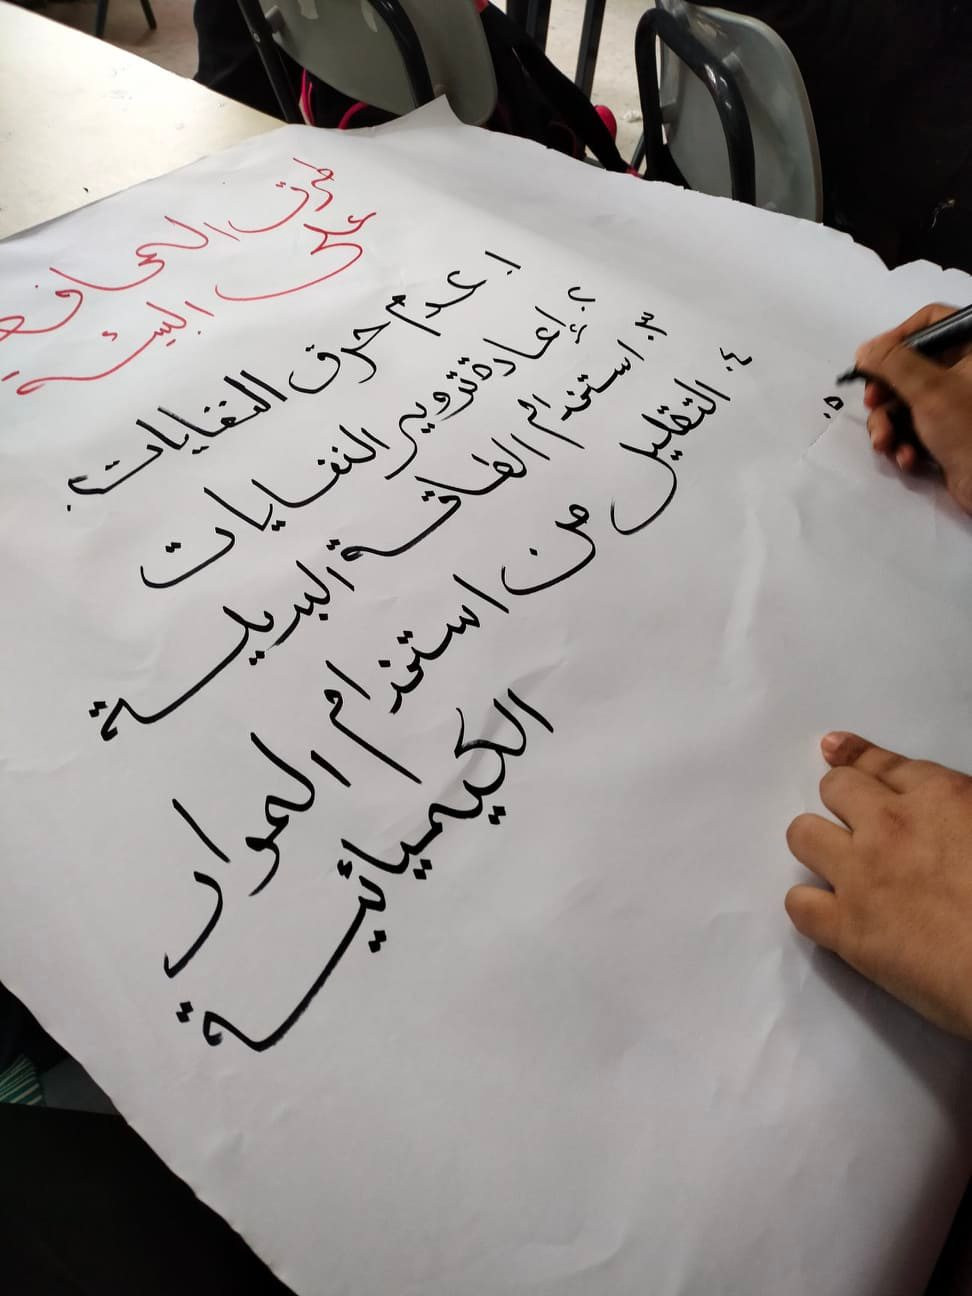 طرق المحافظة
على البيئة
١. عدم حرق النفايات.
٢. إعادة تدوير النفايات
٣. استخدام الطاقة البديلة
٤. التقليل من استخدام المواد
الكيميائية
٥.